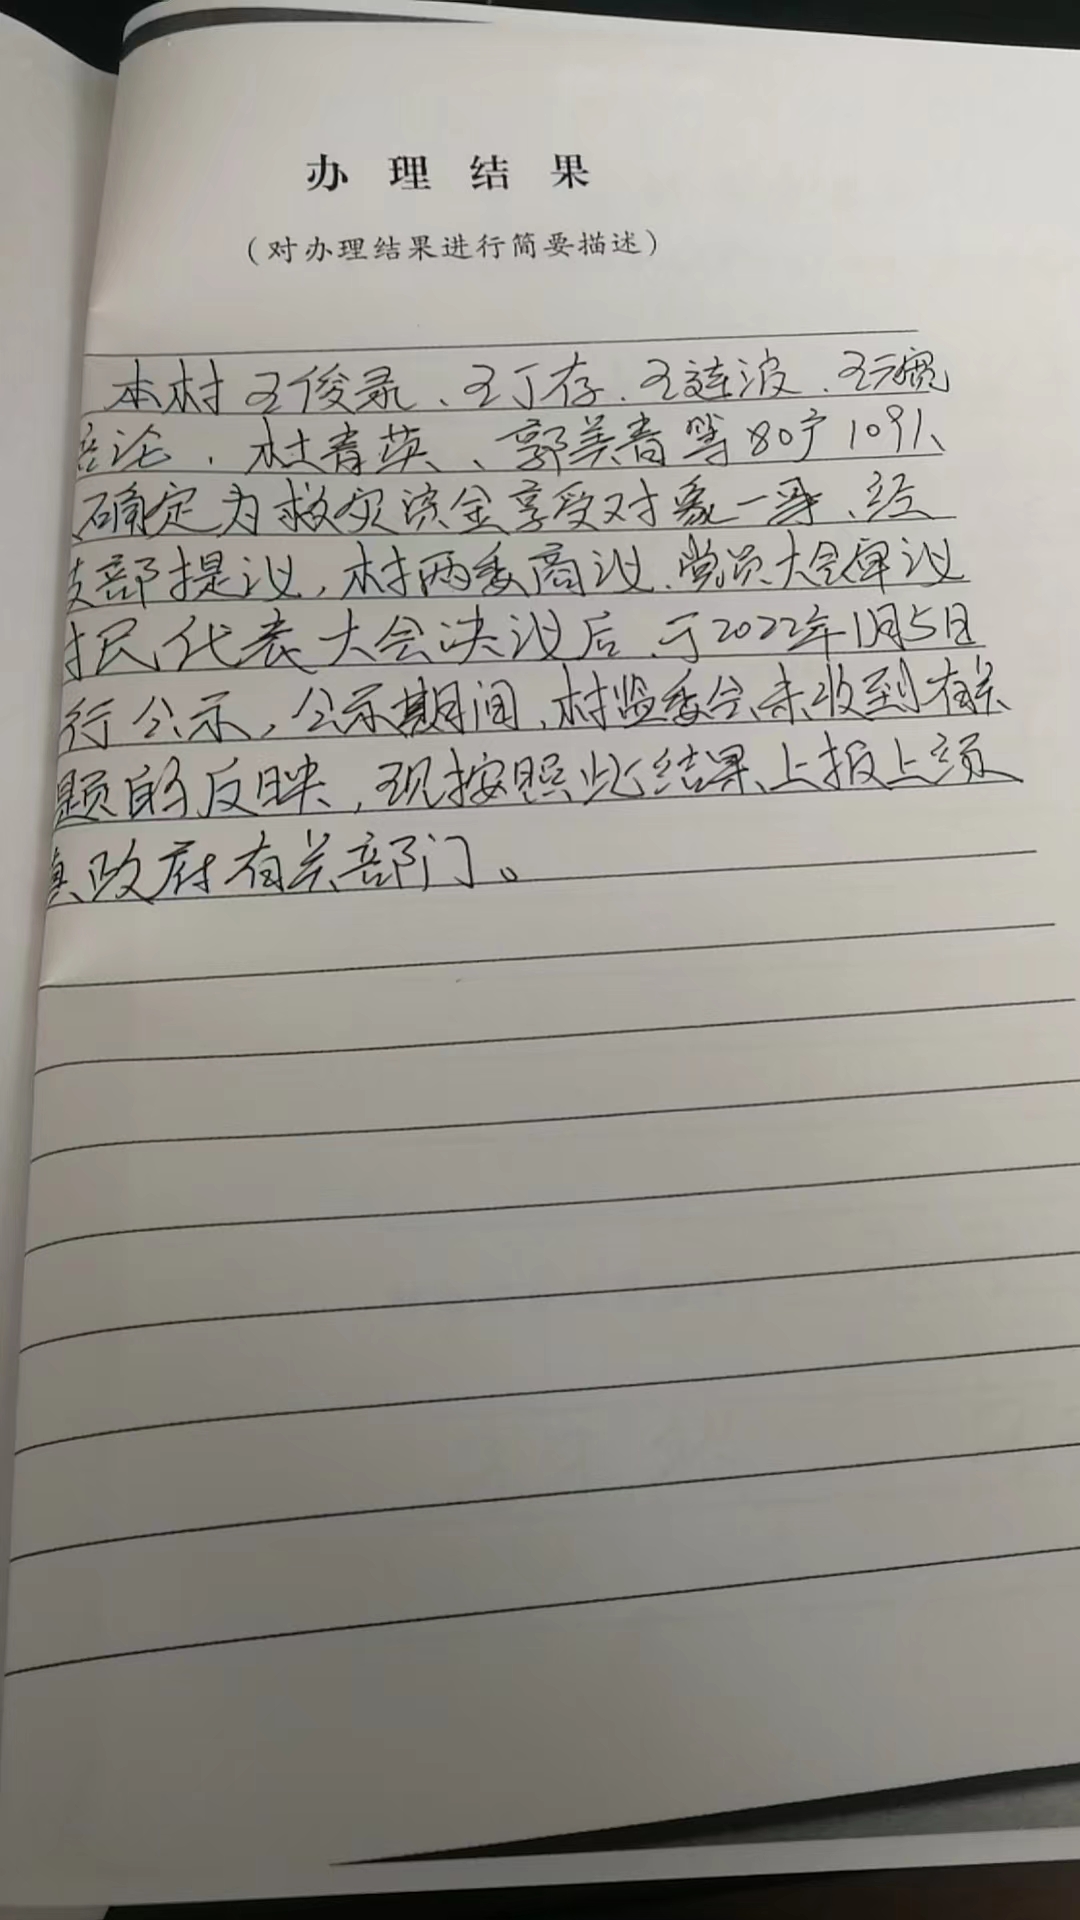 办理结果
(对办理结果进行简要描述)
本村王俊录、王丁存、王琏波、王
论、杜青英、郭美青等80户109人
确定为救灾资金享受对象一事、经
支部提议,村两委商议、党员大会审议
村民代表大会决议后、于2022年1月5日
行公示,公示期间,村监委会未收到有关
题的反映,现按照此结果上报上级
镇政府有关部门。